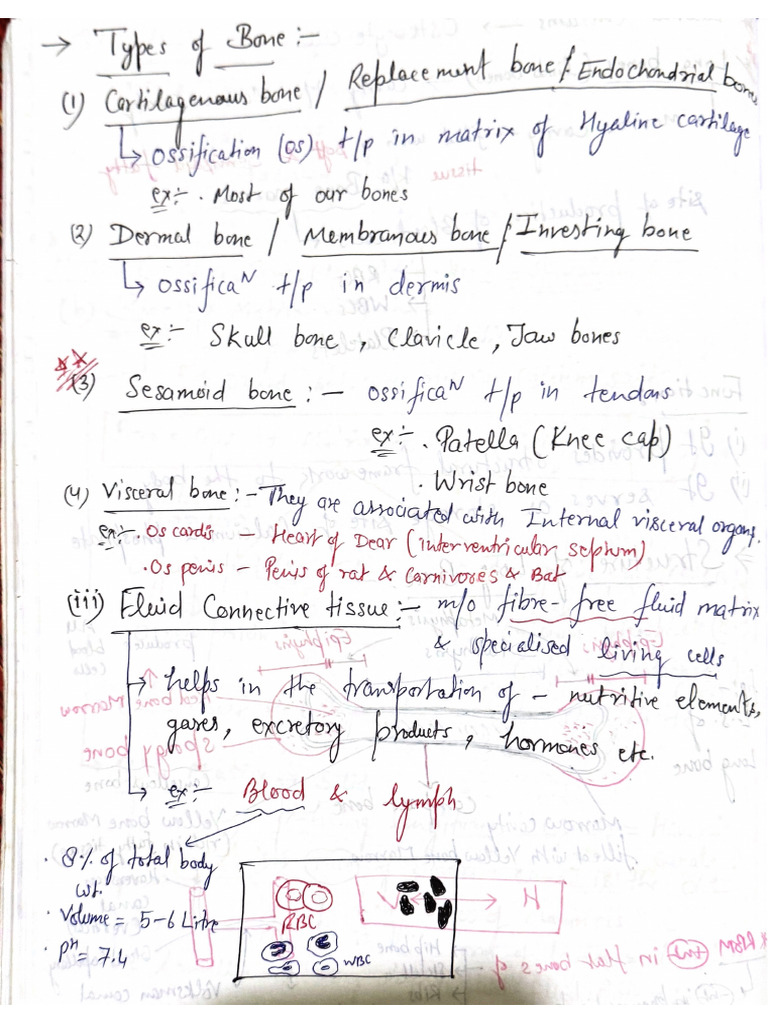 → Types of Bone :-
(1) Cartilagenous bone / Replacement bone / Endochondrial bone
↳ Ossification (os) t/p in matrix of Hyaline cartilage
ex :- . Most of our bones
(2) Dermal bone / Membranous bone / Investing bone
↳ Ossificaᴺ t/p in dermis
ex :- Skull bone , Clavicle , Jaw bones
(3) Sesamoid bone : - Ossificaᴺ t/p in tendons
ex :- . Patella (Knee cap)
. Wrist bone
(4) Visceral bone : - They are associated with Internal visceral organs.
ex :- . Os cardis - Heart of Dear (interventricular septum)
. Os penis - Penis of rat & Carnivores & Bat
(iii) Fluid Connective tissue :- m/o fibre-free fluid matrix
& specialised living cells
→ helps in the transportation of - nutritive elements,
gases, excretory products, hormones etc.
→ ex :- Blood & lymph
. 8% of total body
wt.
. Volume = 5-6 Litre
. pᴴ = 7.4
RBC
WBC